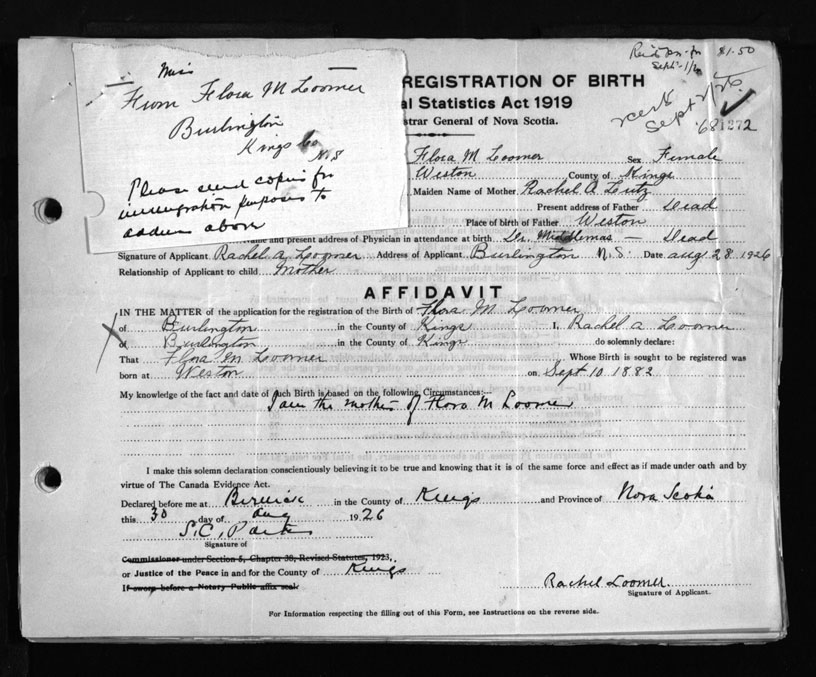 $1.50
Sept. 1/26
Miss
From Flora M Loomer
Burlington
Kings Co
N.S
Please send copies for
immigration purposes to
address above
REGISTRATION OF BIRTH
al Statistics Act 1919
Sept
681272
strar General of Nova Scotia.
Flora M Loomer Sex Female
Weston County of Kings
Maiden Name of Mother Rachel A Lutz
Present address of Father Dead
Place of birth of Father Weston
Name and present address of Physician in attendance at birth Dr. Middlemas — Dead
Signature of Applicant Rachel A Loomer Address of Applicant Burlington N.S. Date Aug 28 1926
Relationship of Applicant to child Mother
AFFIDAVIT
IN THE MATTER of the application for the registration of the Birth of Flora M Loomer
of Burlington in the County of Kings I, Rachel A Loomer
of Burlington in the County of Kings do solemnly declare:
That Flora M Loomer Whose Birth is sought to be registered was
born at Weston on Sept 10 1882
My knowledge of the fact and date of such Birth is based on the following Circumstances:—
I am the mother of Flora M Loomer
I make this solemn declaration conscientiously believing it to be true and knowing that it is of the same force and effect as if made under oath and by
virtue of The Canada Evidence Act.
Declared before me at Berwick in the County of Kings and Province of Nova Scotia
this 30 day of Aug 1926
S.C. Parks
Signature of
Commissioner under Section 5, Chapter 38, Revised Statutes, 1923,
or Justice of the Peace in and for the County of Kings
If sworn before a Notary Public affix seal
Rachel Loomer
Signature of Applicant.
For Information respecting the filling out of this Form, see Instructions on the reverse side.